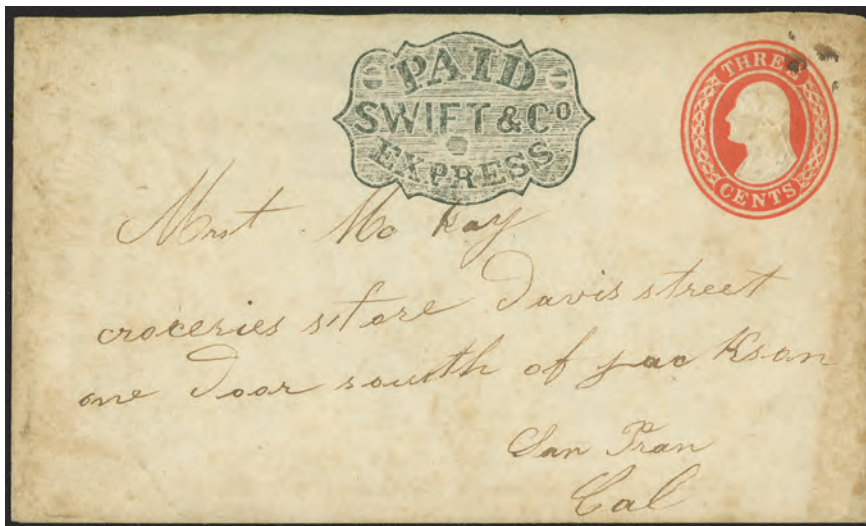 PAID
SWIFT & Co
EXPRESS
THREE
CENTS
Mrst. Mc Kay
croceries store Davis street
one door south of jackson
San Fran
Cal